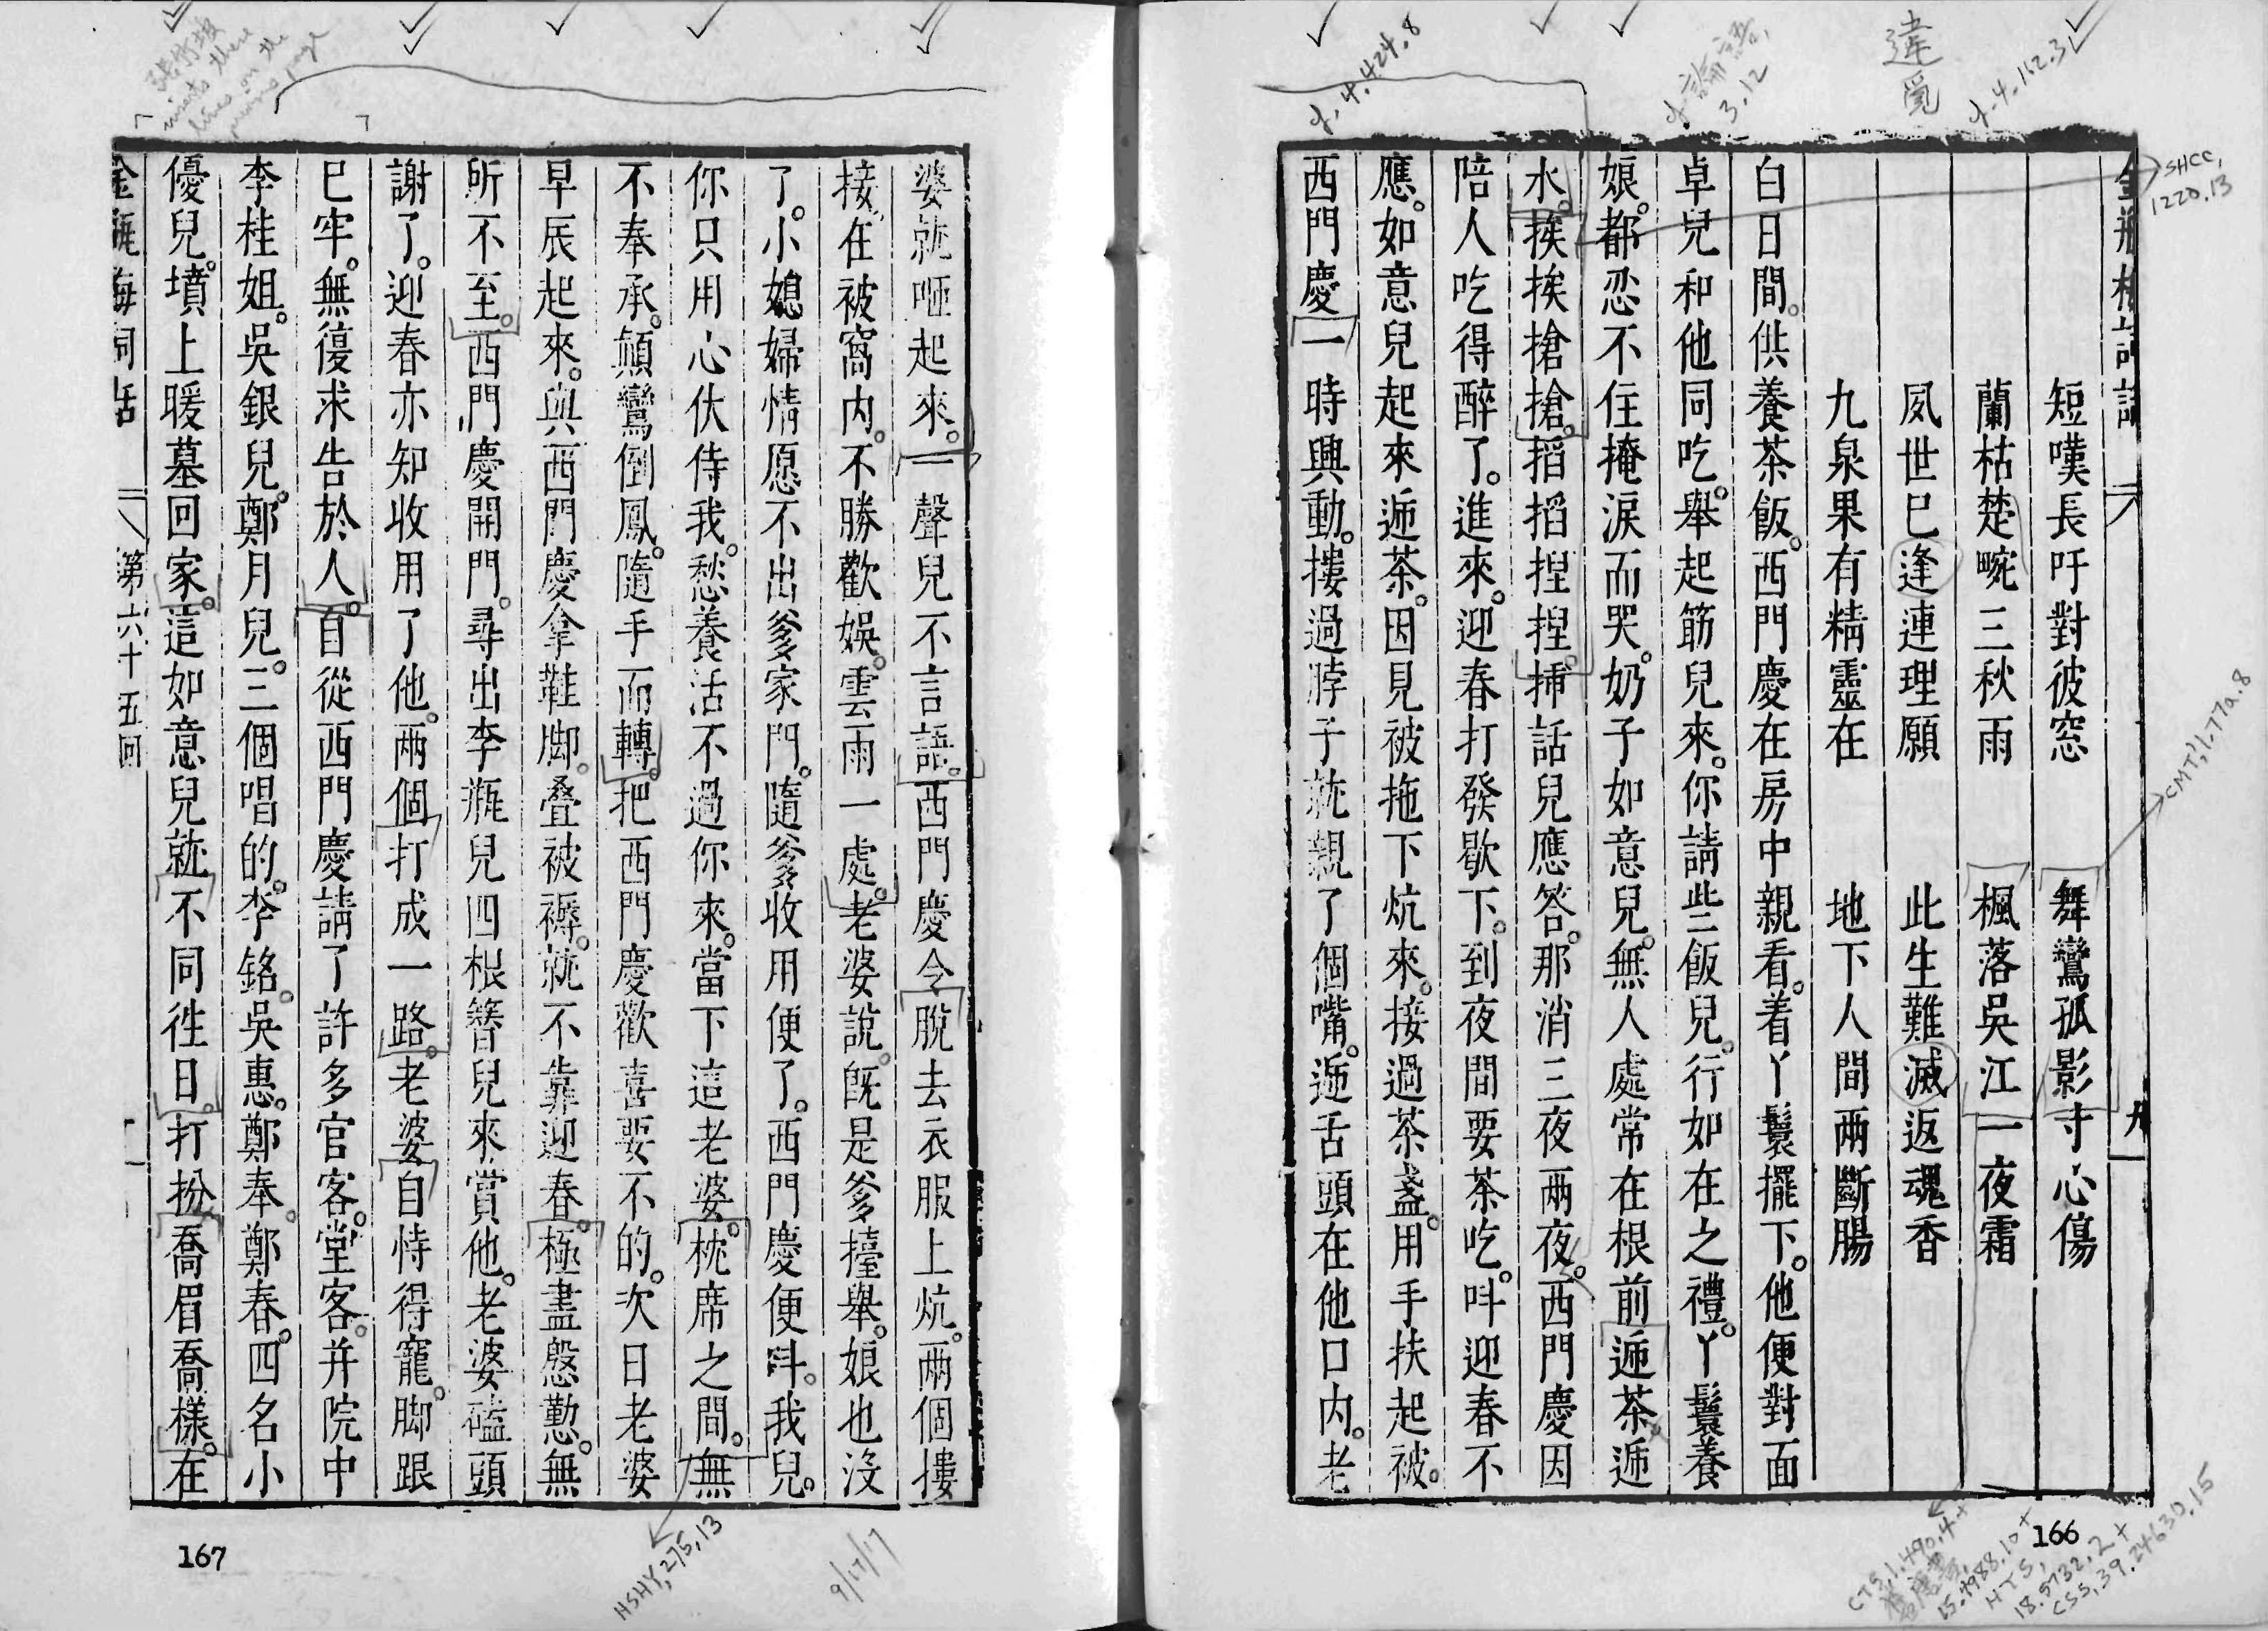 金瓶梅詞話 八 九
短嘆長吁對彼窓 舞鸞孤影寸心傷
蘭枯楚畹三秋雨 楓落吳江一夜霜
夙世巳逢連理願 此生難滅返魂香
九泉果有精靈在 地下人間兩斷腸
白日間。供養茶飯。西門慶在房中親看。着丫鬟擺下。他便對面
卓兒和他同吃。舉起筯兒來。你請些飯兒。行如在之禮。丫鬟養
娘。都忍不住掩淚而哭。奶子如意兒。無人處常在根前遞茶遞
水。挨挨搶搶。搯搯捏捏。挿話兒應答。那消三夜兩夜。西門慶因
陪人吃得醉了。進來。迎春打發歇下。到夜間要茶吃。呌迎春不
應。如意兒起來遞茶。因見被拖下炕來。接過茶盞。用手扶起被。
西門慶一時興動。摟過脖子就親了個嘴。遞舌頭在他口内。老
166
違
覓
cf. 4.424.8
cf. 論語,
3.12
cf. 4.112.3
SHCC,
1220.13
CMT, 1.77a.8
CTS, 1.490.4+
15.4988.10+
HTS,
18.5732.2+
CSS, 39.24630.15
婆就咂起來。一聲兒不言語。西門慶令脫去衣服上炕。兩個摟
接。在被窩内。不勝歡娛。雲雨一處。老婆說。旣是爹擡舉。娘也沒
了。小媳婦情愿不出爹家門。隨爹收用便了。西門慶便呌。我兒。
你只用心伏侍我。愁養活不過你來。當下這老婆。枕席之間。無
不奉承。顛鸞倒鳳。隨手而轉。把西門慶歡喜要不的。次日老婆
早辰起來。與西門慶拿鞋脚。叠被褥。就不靠迎春。極盡慇懃。無
所不至。西門慶開門。尋出李瓶兒四根簪兒來賞他。老婆磕頭
謝了。迎春亦知收用了他。兩個打成一路。老婆自恃得寵。脚跟
巳牢。無復求告於人。自從西門慶請了許多官客。堂客。并院中
李桂姐。吳銀兒。鄭月兒。三個唱的。李銘。吳惠。鄭奉。鄭春。四名小
優兒。墳上暖墓回家。這如意兒就不同徃日。打扮喬眉喬樣。在
金瓶梅詞話 八 第六十五回 十
167
張竹坡
these
lines on the
previous page
HSHY, 275.13
9/17/17